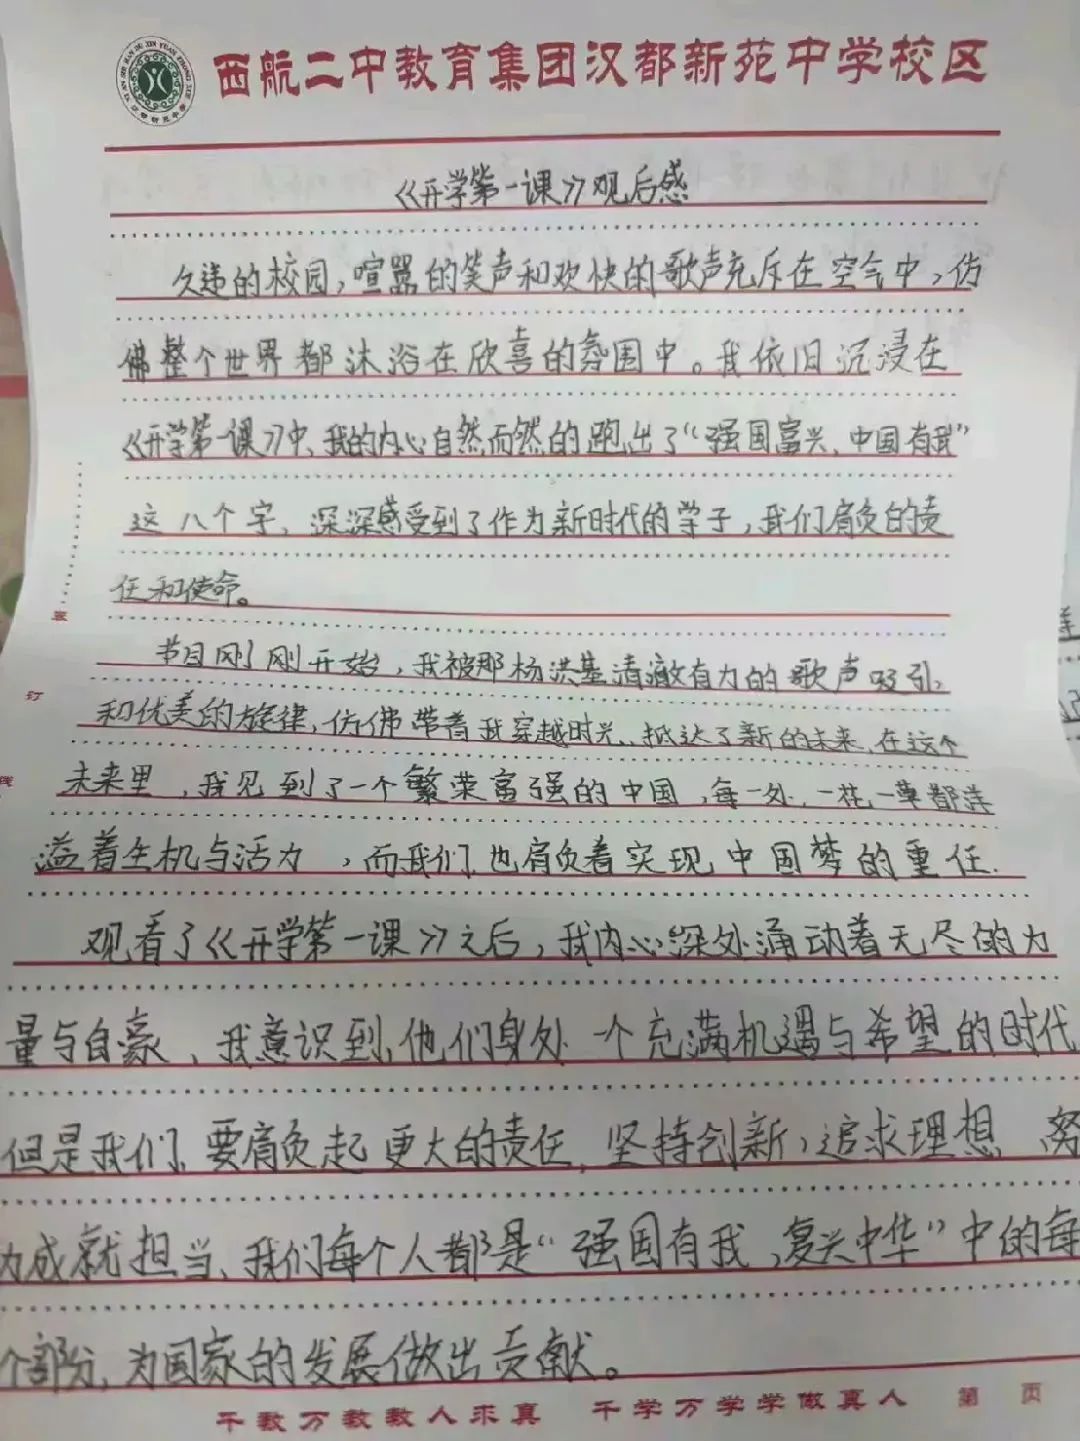 西航二中教育集团汉都新苑中学校区
《开学第一课》观后感
久违的校园，喧嚣的笑声和欢快的歌声充斥在空气中，仿
佛整个世界都沐浴在欣喜的氛围中。我依旧沉浸在
《开学第一课》中、我的内心自然而然的跑出了“强国富兴、中国有我”
这八个字、深深感受到了作为新时代的学子，我们肩负的责
任和使命。
节目刚刚开始，我被那杨洪基清澈有力的歌声吸引，
和优美的旋律，仿佛带着我穿越时光、抵达了新的未来，在这个
未来里，我见到了一个繁荣富强的中国，每一处、一花一草都洋
溢着生机与活力，而我们也肩负着实现中国梦的重任.
观看了《开学第一课》之后，我内心深处涌动着无尽的力
量与自豪、我意识到，他们身处一个充满机遇与希望的时代
但是我们要肩负起更大的责任，坚持创新，追求理想 努
力成就担当、我们每个人都是“强国有我，复兴中华”中的每
个部分，为国家的发展做出贡献。
装
订
线
千教万教教人求真 千学万学学做真人 第 页